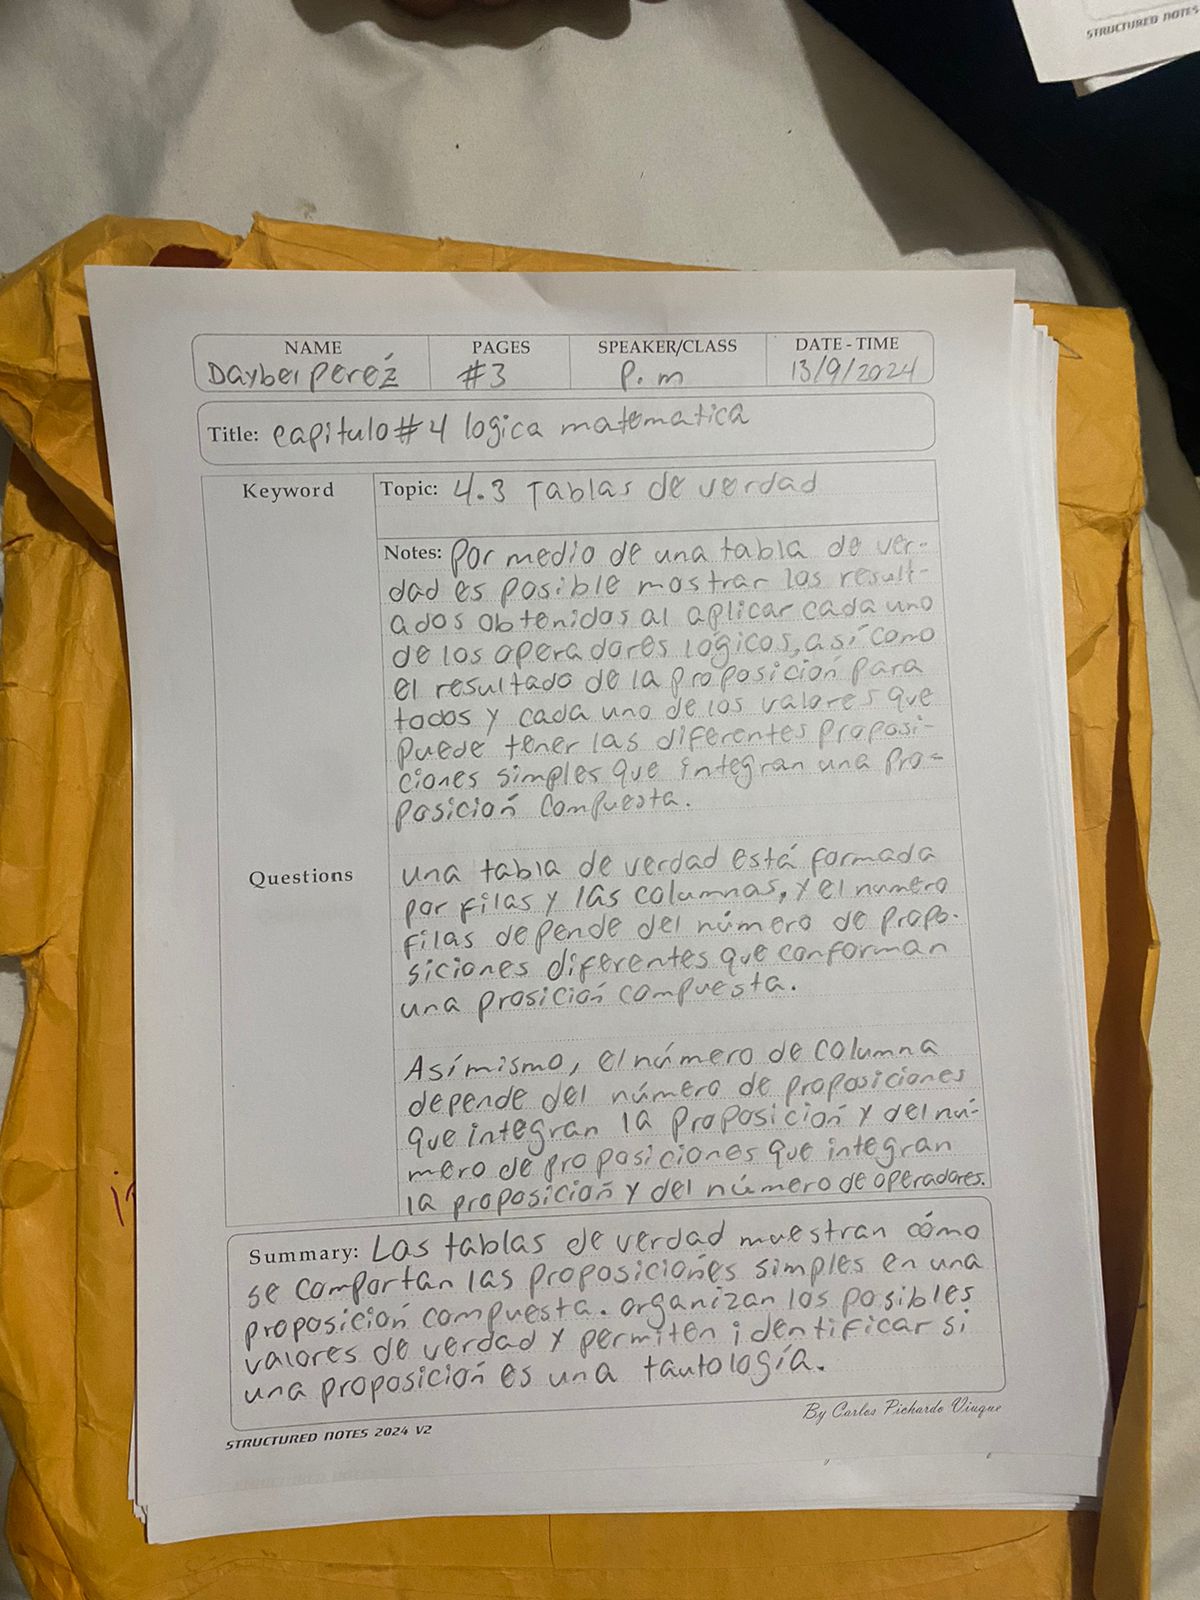 STRUCTURED NOTES
NAME PAGES SPEAKER/CLASS DATE - TIME
Daybei Pereź #3 P.m 13/9/2024
Title: capitulo#4 logica matematica
Keyword Topic: 4.3 Tablas de verdad
Notes: Por medio de una tabla de ver-
dad es posible mostrar los result-
ados obtenidos al aplicar cada uno
de los operadores lógicos, así como
el resultado de la proposición para
todos y cada uno de los valores que
puede tener las diferentes proposi-
ciones simples que integran una pro-
posición compuesta.
Questions
una tabla de verdad está formada
por filas y las columnas, y el numero
filas depende del número de propo-
siciones diferentes que conforman
una prosición compuesta.
Así mismo, el número de columna
depende del número de proposiciones
que integran la proposición y del nú-
mero de proposiciones que integran
la proposición y del número de operadores.
Summary: Las tablas de verdad muestran cómo
se comportan las proposiciónes simples en una
proposición compuesta. organizan los posibles
valores de verdad y permiten identificar si
una proposición es una tautología.
By Carlos Pichardo Viuque
STRUCTURED NOTES 2024 V2